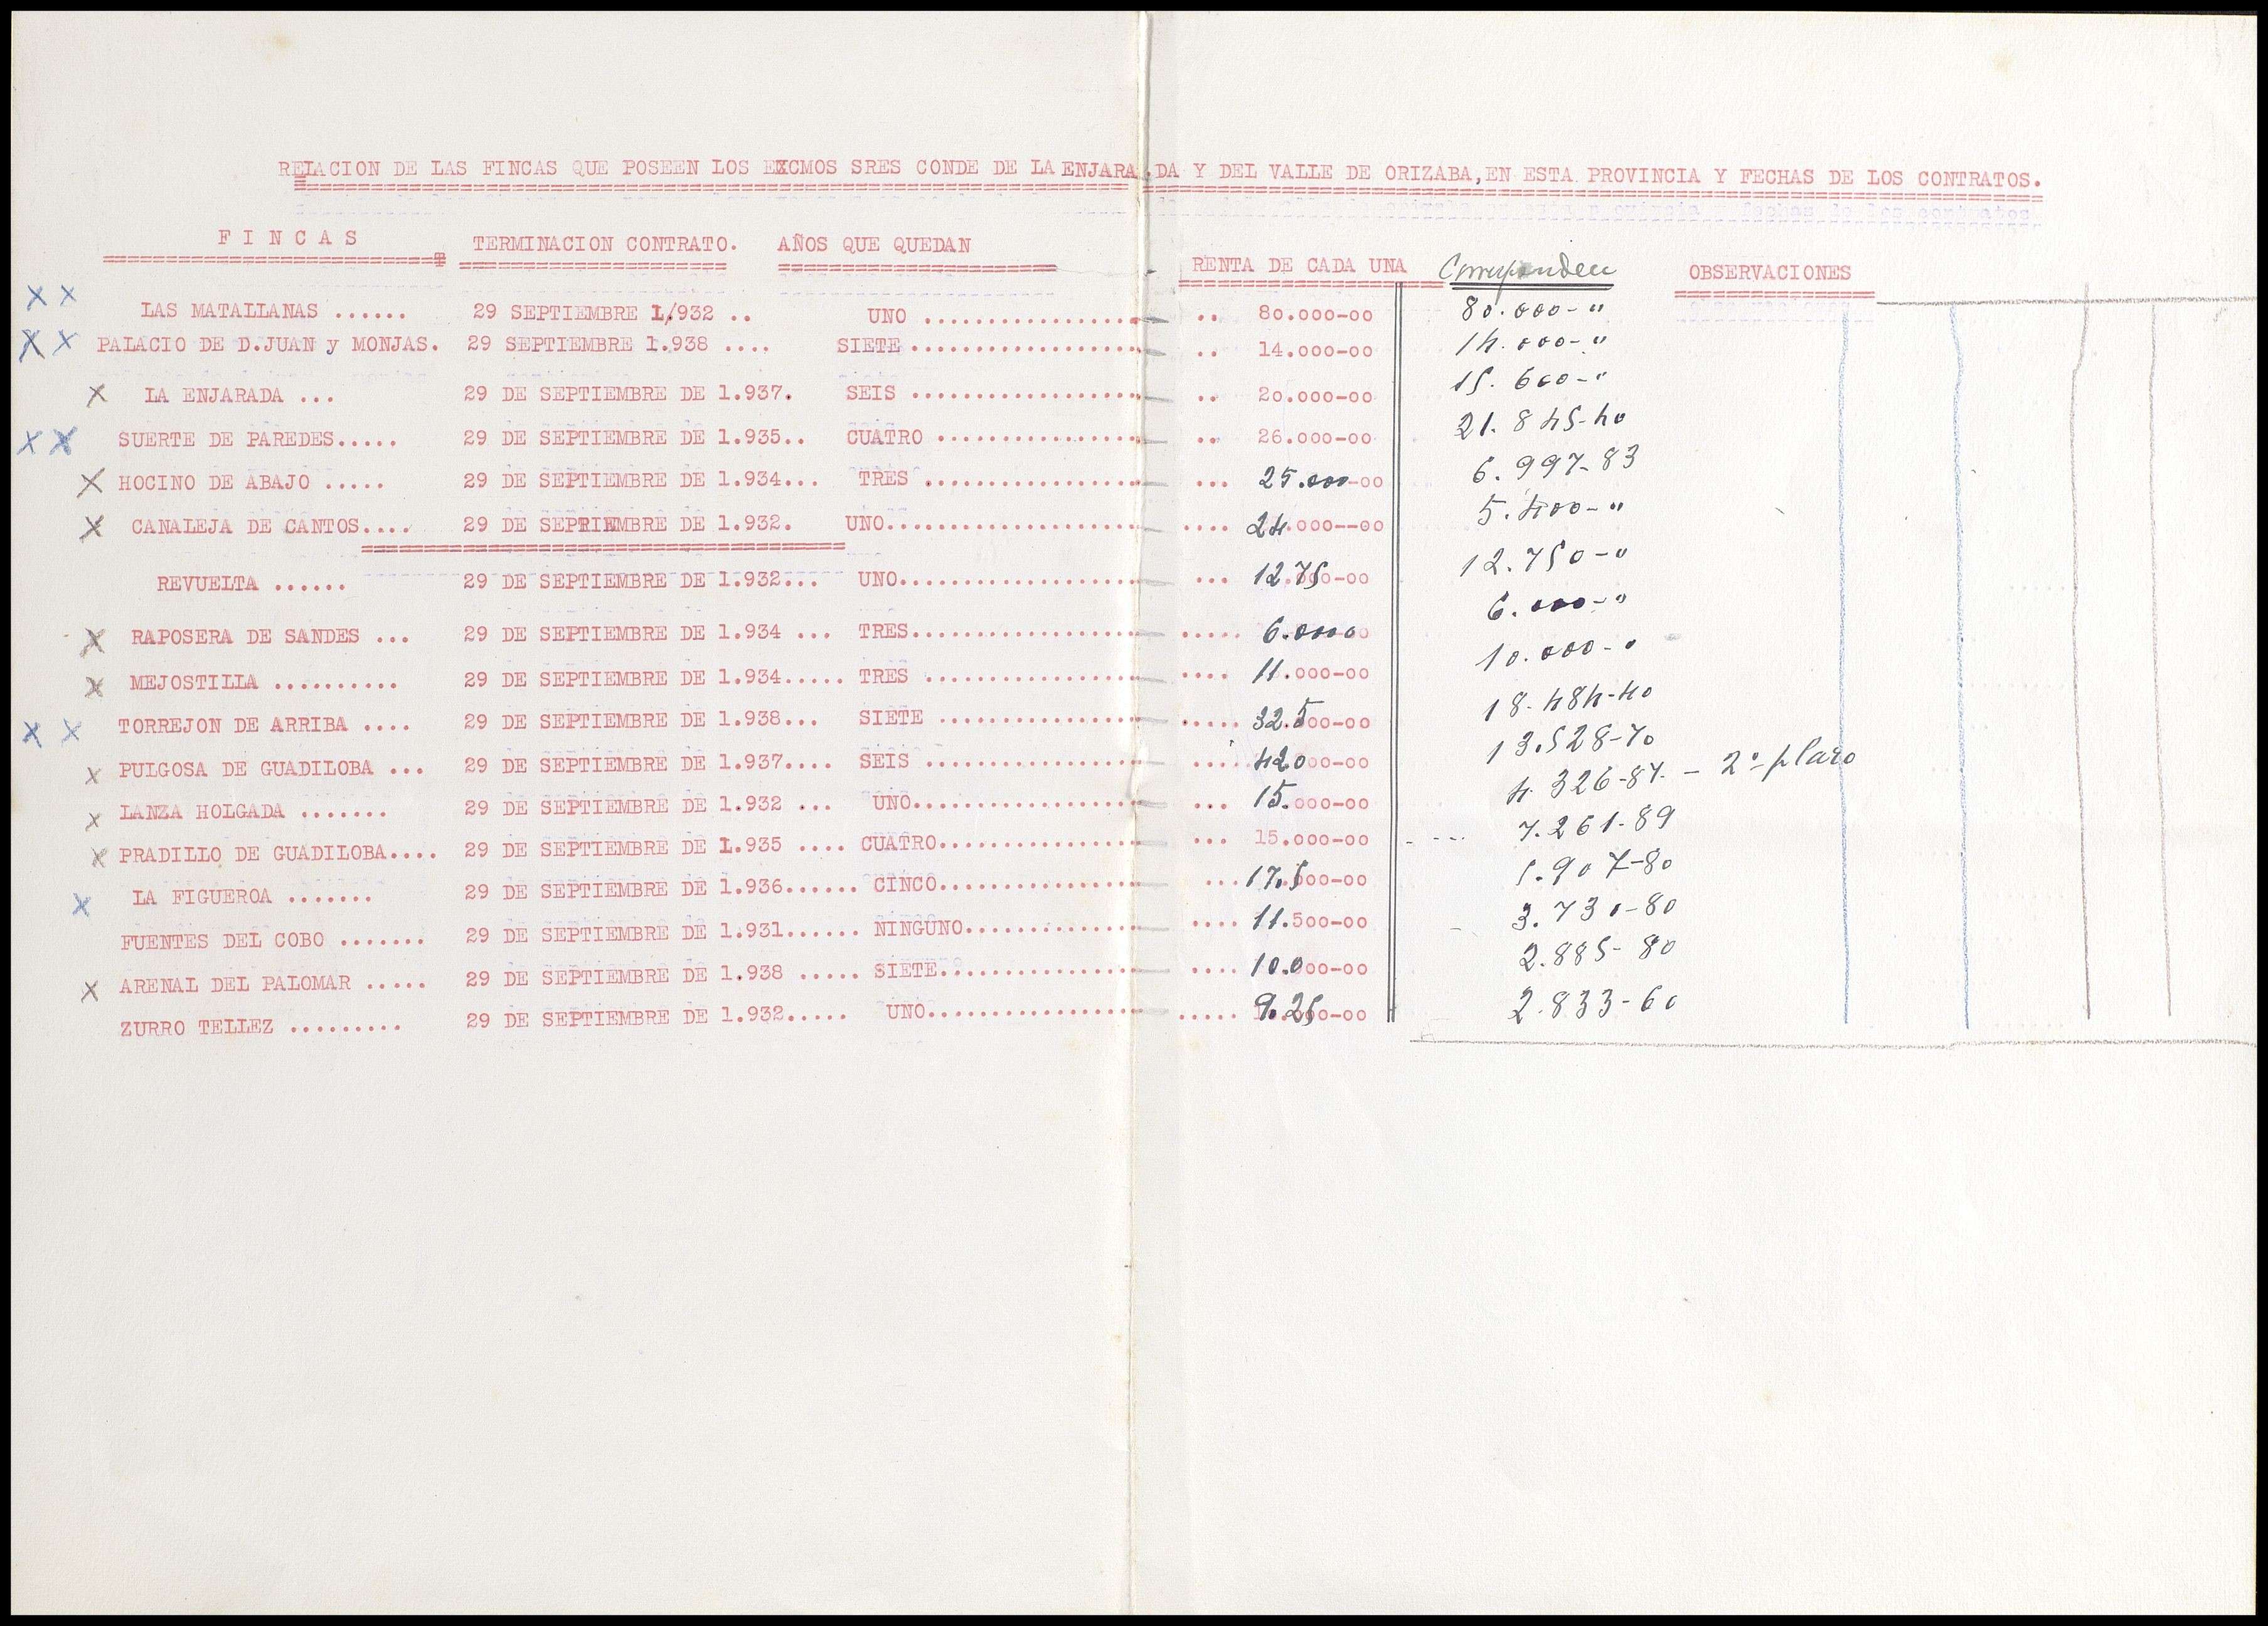 RELACION DE LAS FINCAS QUE POSEEN LOS EXCMOS SRES CONDE DE LA ENJARADA Y DEL VALLE DE ORIZABA, EN ESTA PROVINCIA Y FECHAS DE LOS CONTRATOS.
F I N C A S TERMINACION CONTRATO. AÑOS QUE QUEDAN RENTA DE CADA UNA Corresponden OBSERVACIONES
X X LAS MATALLANAS ...... 29 SEPTIEMBRE 1/932 .. UNO .................. .. 80.000-00 80.000-"
X X PALACIO DE D.JUAN y MONJAS. 29 SEPTIEMBRE 1.938 .... SIETE .................. .. 14.000-00 14.000-"
X LA ENJARADA ... 29 DE SEPTIEMBRE DE 1.937. SEIS .................. .. 20.000-00 15.600-"
X X SUERTE DE PAREDES..... 29 DE SEPTIEMBRE DE 1.935.. CUATRO ................ .. 26.000-00 21.845-40
X HOCINO DE ABAJO ..... 29 DE SEPTIEMBRE DE 1.934... TRES ................. ... 25.000-00 6.997-83
X CANALEJA DE CANTOS.... 29 DE SEPTIEMBRE DE 1.932. UNO.................... .... 24.000--00 5.400-"
REVUELTA ...... 29 DE SEPTIEMBRE DE 1.932... UNO................... ... 12.750-00 12.750-"
X RAPOSERA DE SANDES ... 29 DE SEPTIEMBRE DE 1.934 ... TRES.................. ..... 6.000 6.000-"
X MEJOSTILLA .......... 29 DE SEPTIEMBRE DE 1.934..... TRES ................. .... 11.000-00 10.000-"
X X TORREJON DE ARRIBA .... 29 DE SEPTIEMBRE DE 1.938... SIETE ................ ..... 32.500-00 18.484-40
X PULGOSA DE GUADILOBA ... 29 DE SEPTIEMBRE DE 1.937.... SEIS ................. ..... 42000-00 13.528-70
X LANZA HOLGADA ....... 29 DE SEPTIEMBRE DE 1.932 ... UNO.................. ... 15.000-00 4.326-87 - 2º plazo
X PRADILLO DE GUADILOBA.... 29 DE SEPTIEMBRE DE 1.935 .... CUATRO................ ... 15.000-00 7.261-89
X LA FIGUEROA ....... 29 DE SEPTIEMBRE DE 1.936...... CINCO................ ... 17.500-00 5.907-80
FUENTES DEL COBO ....... 29 DE SEPTIEMBRE DE 1.931...... NINGUNO.............. .... 11.500-00 3.730-80
X ARENAL DEL PALOMAR ..... 29 DE SEPTIEMBRE DE 1.938 ..... SIETE................ .... 10.000-00 2.885-80
ZURRO TELLEZ ......... 29 DE SEPTIEMBRE DE 1.932..... UNO................. ..... 9.250-00 2.833-60